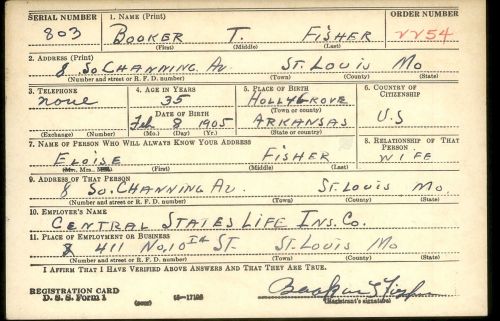 SERIAL NUMBER 1. NAME (Print) ORDER NUMBER
803 BOOKER T. FISHER VV54
(First) (Middle) (Last)
2. ADDRESS (Print)
8 So. CHANNING AV ST. LOUIS MO
(Number and street or R. F. D. number) (Town) (County) (State)
3. TELEPHONE 4. AGE IN YEARS 5. PLACE OF BIRTH 6. COUNTRY OF CITIZENSHIP
none 35 HOLLY GROVE
(Town or county)
DATE OF BIRTH
Feb 8 1905 ARKANSAS U.S
(Exchange) (Number) (Mo.) (Day) (Yr.) (State or country)
7. NAME OF PERSON WHO WILL ALWAYS KNOW YOUR ADDRESS 8. RELATIONSHIP OF THAT PERSON
ELOISE FISHER WIFE
(First) (Middle) (Last)
9. ADDRESS OF THAT PERSON
8 So. CHANNING AV. ST. LOUIS MO.
(Number and street or R. F. D. number) (Town) (County) (State)
10. EMPLOYER'S NAME
CENTRAL STATES LIFE INS. CO.
11. PLACE OF EMPLOYMENT OR BUSINESS
411 No. 10 ST. ST. LOUIS MO
(Number and street or R. F. D. number) (Town) (County) (State)
I AFFIRM THAT I HAVE VERIFIED ABOVE ANSWERS AND THAT THEY ARE TRUE.
REGISTRATION CARD
D. S. S. Form 1 (over) 16—17105